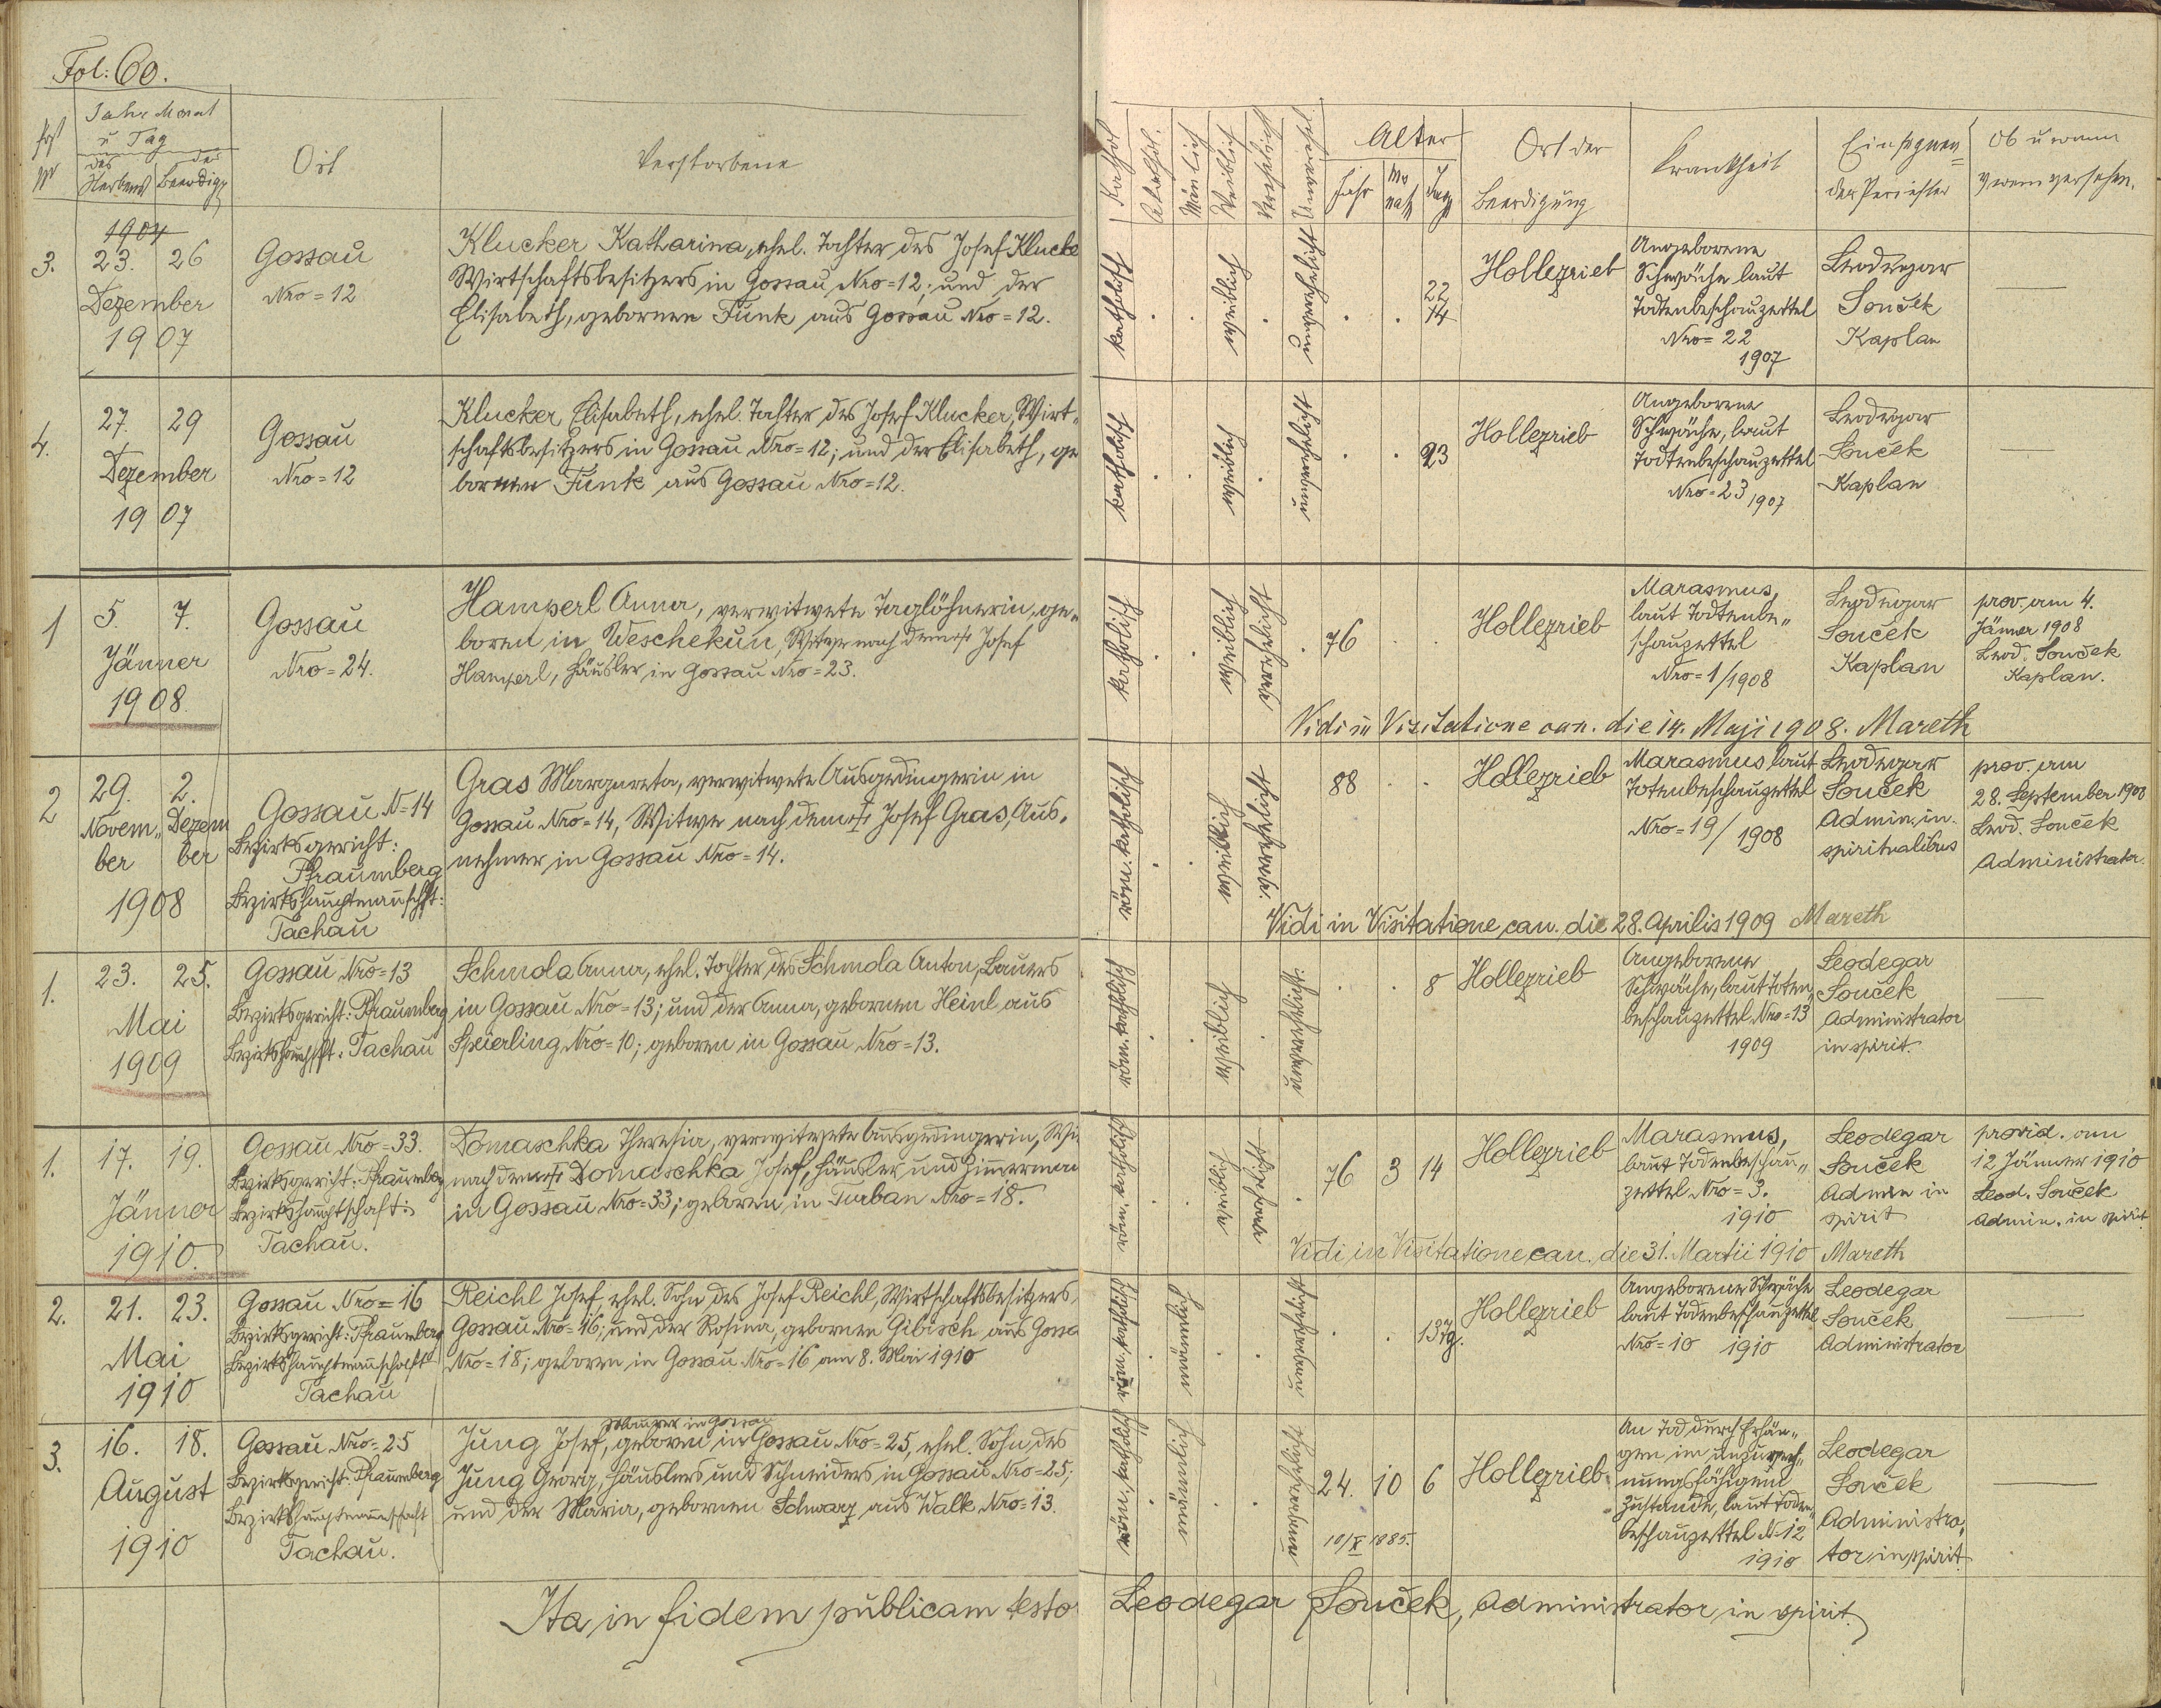 Fol: 60.
Jahr Monat
u Tag
des Sterbens
der Beerdigg
Ort
Verstorbene
Kathol.
Akathol.
Mänlich
Weiblich
Verehelicht
Unverehel.
Alter
Jahr
Mo
nath
Tage
Ort der
Beerdigung
Krankheit
Einsegnen=
der Priester
Ob u wann
v wem versehen.
3.
1904
23. 26
Dezember
1907
Gossau
Nro = 12
Klucker Katharina, ehel. Tochter des Josef Klucke
Wirtschaftsbesitzers in Gossau Nro = 12; und der
Elisabeth, gebornen Funk aus Gossau Nro = 12.
katholisch
weiblich
unverehelicht
22
14
Hollezrieb
Angeborene
Schwäche laut
Todtenbeschauzettel
Nro = 22
1907
Leodegar
Souček
Kaplan
4.
27. 29
Dezember
1907
Gossau
Nro = 12
Klucker Elisabeth, ehel. Tochter des Josef Klucker, Wirt„
schaftsbesitzers in Gossau Nro = 12; und der Elisabeth, ge
bornen Funk aus Gossau Nro = 12.
katholisch
weiblich
unverehelicht
23
Hollezrieb
Angeborene
Schwäche, laut
Todtenbeschauzettel
Nro = 23 1907
Leodegar
Souček
Kaplan
1
5. 7.
Jänner
1908.
Gossau
Nro = 24.
Hamperl Anna, verwitwete Taglöhnerin, ge„
boren in Weschekun, Witwe nach dem † Josef
Hamperl, Häusler in Gossau Nro = 23.
katholisch
weiblich
verehelicht
76
Hollezrieb
Marasmus,
laut Todtenbe„
schauzettel
Nro = 1/1908
Leodegar
Souček
Kaplan
prov. am 4.
Jänner 1908
Leod. Souček
Kaplan.
Vidi in Visitatione can. die 14. Maji 1908. Mareth
2
29. 2.
Novem„ Dezem
ber ber
1908
Gossau N = 14
Bezirksgericht:
Pfraumberg
Bezirkshauptmannschft:
Tachau
Gras Margareta, verwitwete Ausgedingerin in
Gossau Nro = 14, Witwe nach dem † Josef Gras, Aus„
nehmer in Gossau Nro = 14.
röm. katholisch
weiblich
verehelicht
88
Hollezrieb
Marasmus laut
Totenbeschauzettel
Nro = 19/1908
Leodegar
Souček
Admin. in
spiritualibus
prov. am
28. September 1908
Leod. Souček
Administrator.
Vidi in Visitatione can. die 28. Aprilis 1909 Mareth
1.
23. 25.
Mai
1909
Gossau Nro = 13
Bezirksgericht: Pfraumberg
Bezirkshauptschft: Tachau
Schmola Anna, ehel. Tochter des Schmola Anton, Bauers
in Gossau Nro = 13; und der Anna, gebornen Heinl aus
Speierling Nro = 10; geboren in Gossau Nro = 13.
röm. katholisch
weiblich
unverehelicht.
8
Hollezrieb
Angeborene
Schwäche, laut Toten„
beschauzettel Nro = 13
1909
Leodegar
Souček
Administrator
in spirit.
1.
17. 19.
Jänner
1910.
Gossau Nro = 33.
Bezirksgericht: Pfraumbg
Bezirkshauptschaft:
Tachau.
Domaschka Theresia, verwitwete Ausgedingerin, Wi
nach dem † Domaschka Josef, Häusler und Zimmerman
in Gossau Nro = 33; geboren in Turban Nro = 18.
röm. katholisch
weiblich
verehelicht
76 3 14
Hollezrieb
Marasmus,
laut Todenbeschau„
zettel Nro = 3.
1910
Leodegar
Souček
Admin in
spirit
provid. am
12 Jänner 1910
Leod. Souček
Admin. in spirit
Vidi in Visitatione can. die 31. Martii 1910 Mareth
2.
21. 23.
Mai
1910
Gossau Nro = 16
Bezirksgericht: Pfraumberg
Bezirkshauptmannschaft
Tachau
Reichl Josef, ehel. Sohn des Josef Reichl, Wirtschaftsbesitzers,
Gossau Nro = 16; und der Rosina, gebornen Gibisch aus Gossa
Nro = 18; geboren in Gossau Nro = 16 am 8. Mai 1910
röm. katholisch
männlich
unverehelicht
13 Tg.
Hollezrieb
Angeborene Schwäche
laut Todenbeschauzettel
Nro = 10 1910
Leodegar
Souček,
Administrator
3.
16. 18.
August
1910
Gossau Nro = 25
Bezirksgericht: Pfraumberg
Bezirkshauptmannschaft
Tachau.
in Gossau
Jung Josef, geboren in Gossau Nro = 25, ehel. Sohn des
Jung Georg, Häuslers und Schneiders in Gossau Nro = 25;
und der Maria, gebornen Schwarz aus Walk Nro = 13.
röm. katholisch
männlich
unverehelicht
24. 10 6
10/X 1885.
Hollezrieb
An Tod durch Erhän„
gen im unzurech„
nungsfähigem
Zustande, laut Toden„
beschauzettel N = 12
1910
Leodegar
Souček
Administra„
tor in spirit.
Ita in fidem publicam testor Leodegar Souček, Administrator in spirit.